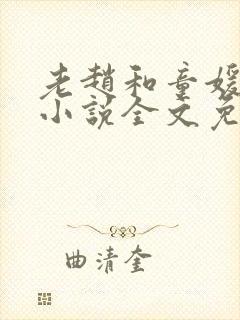 老趙和童媛
小說全文免
曲清奎